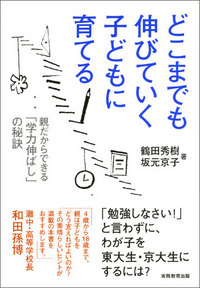 どこまでも
伸びていく
子どもに
育てる
親だからできる
「学力伸ばし」
の秘訣
鶴田秀樹
坂元京子
著
4歳から18歳まで、
親は子どもを
どう支えればよいのか?
その素晴らしいヒントが
満載の本書を
おすすめします。
灘中・高等学校長
和田孫博
「勉強しなさい!」
と言わずに、
わが子を
東大生・京大生
にするには?
実務教育出版